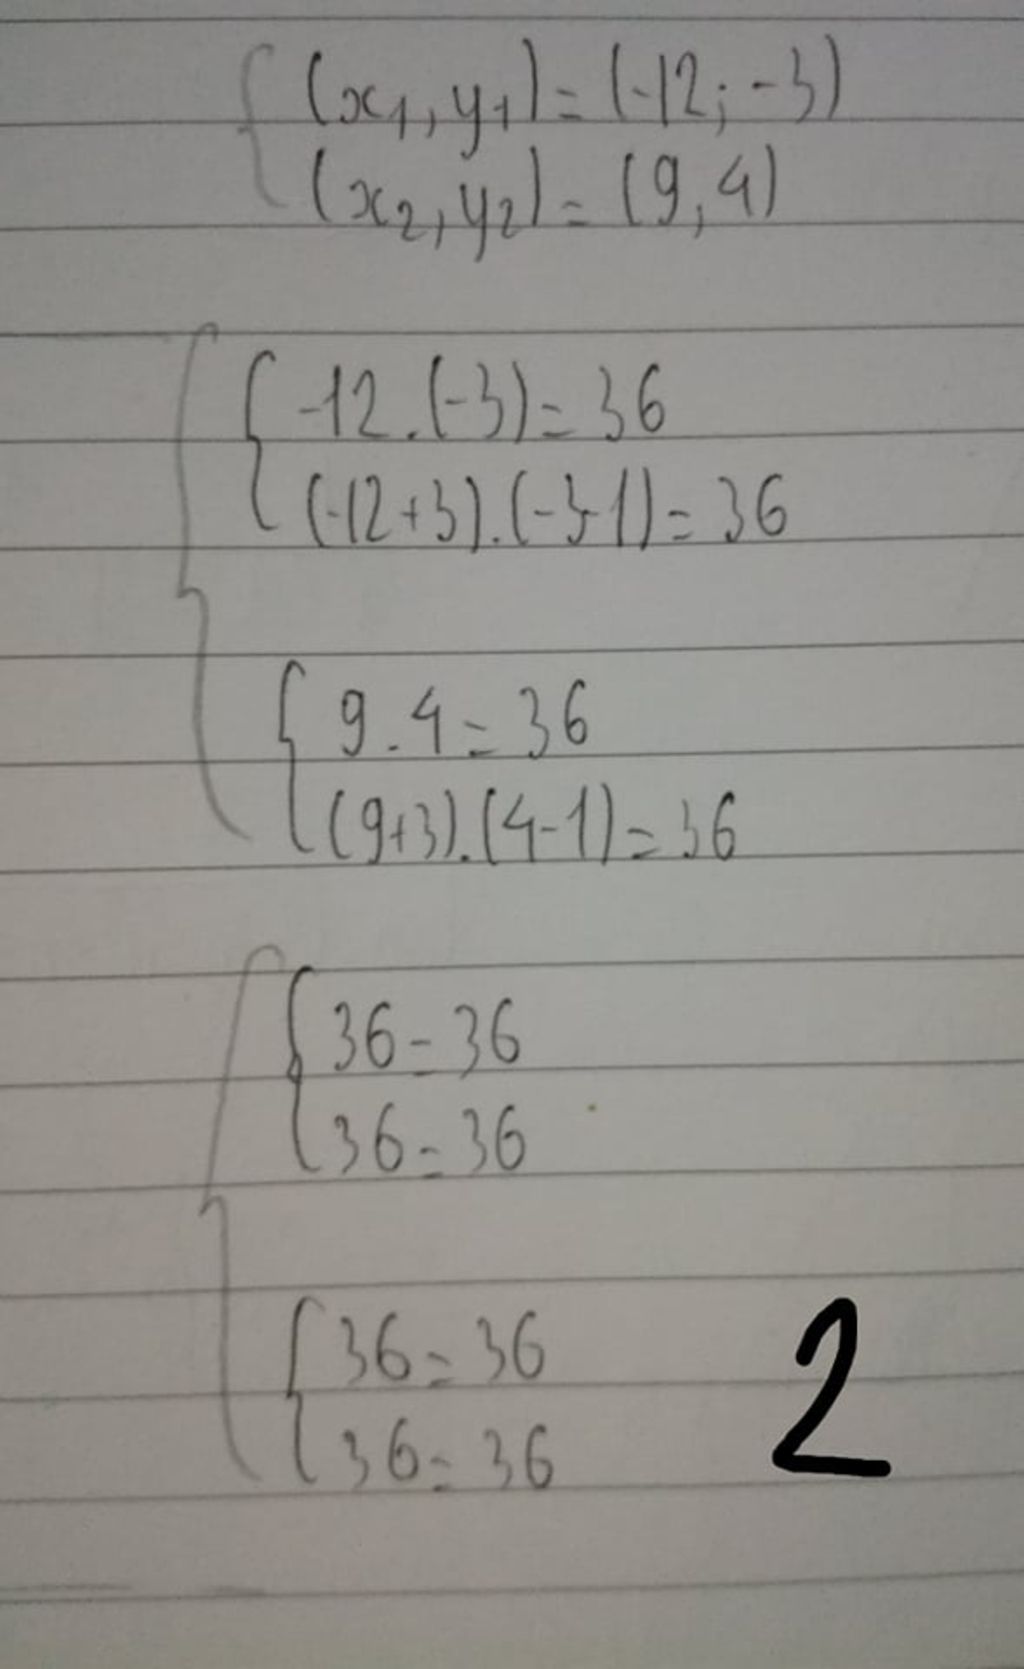 (x1,y1)=(-12;-3)
(x2,y2)=(9,4)
-12.(-3)=36
(-12+3).(-3-1)=36
9.4=36
(9+3).(4-1)=36
36=36
36=36
36=36
36=36
2